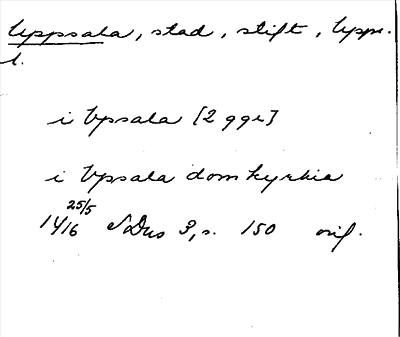 Uppsala, stad, stift, Upps.
l.
i Upsala [2 ggr]
i Upsala domkyrkia
25/5
1416 SDns 3, s. 150 orig.